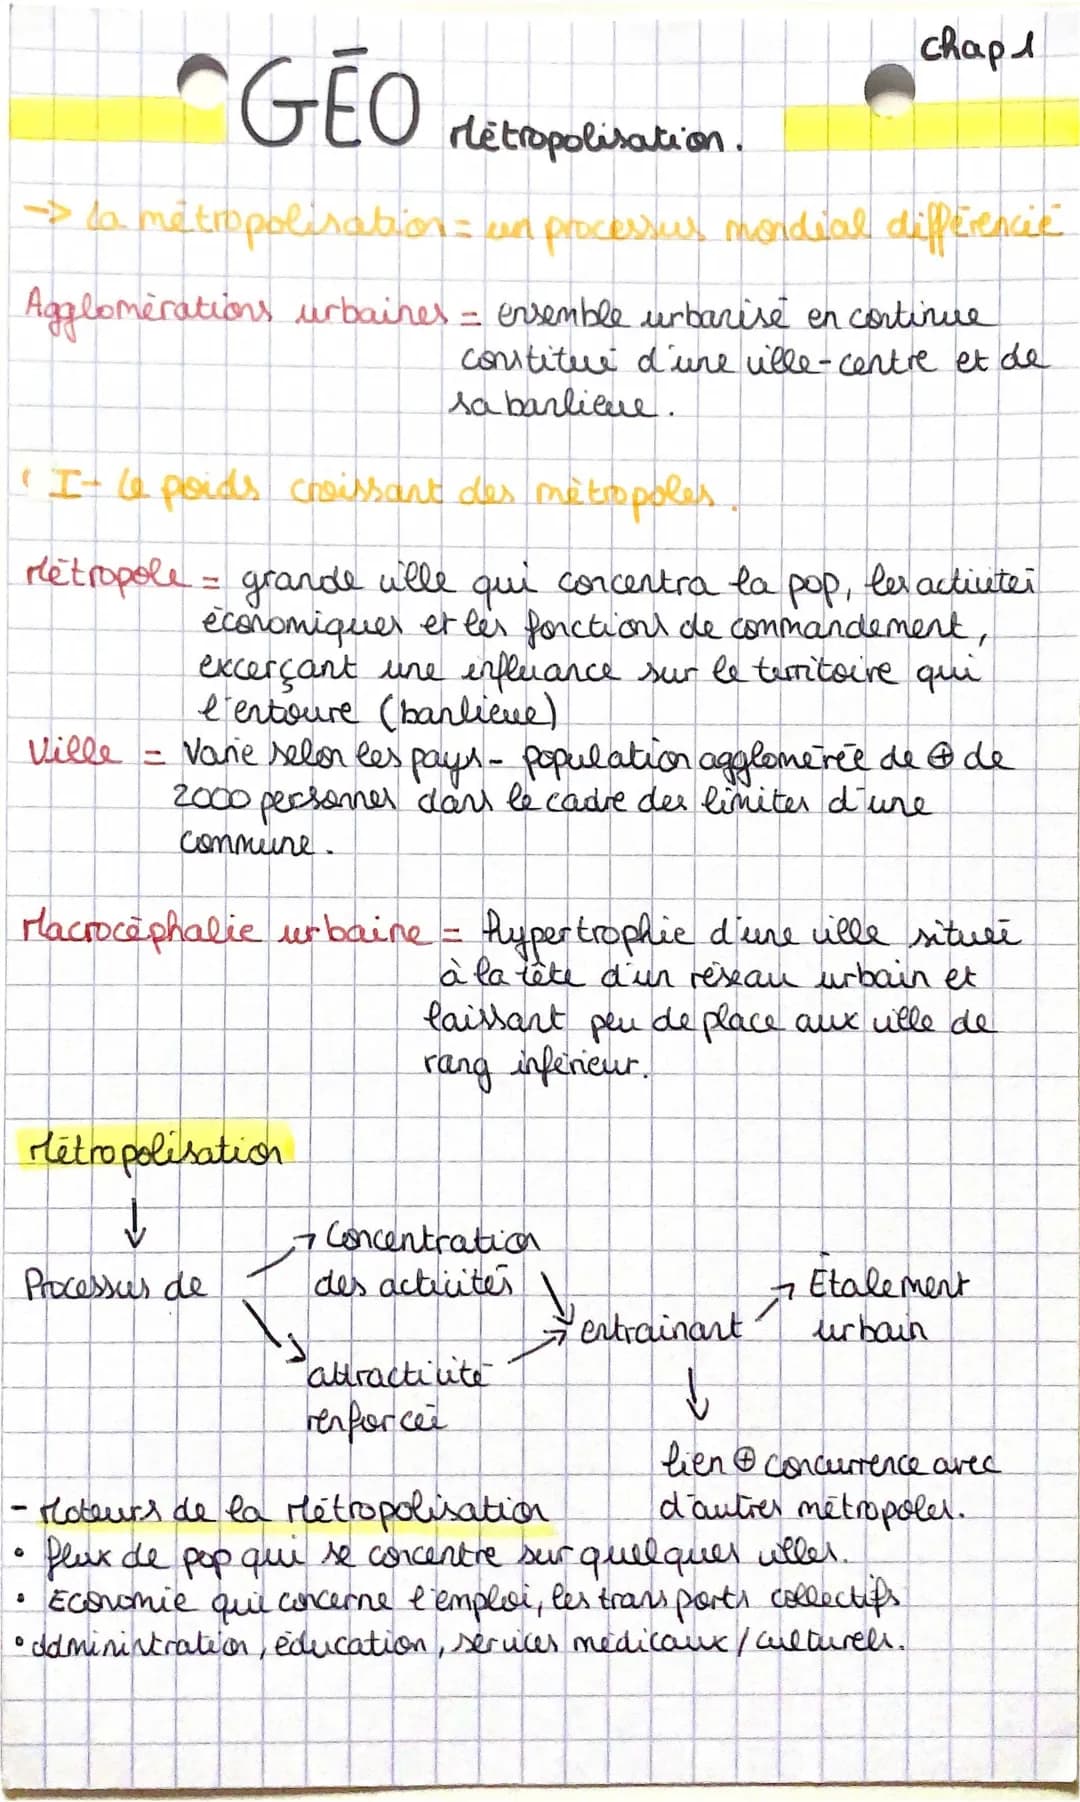 chap 1
GÉO Métropolisation.
-> La métropolisation = un processus mondial différencié
Agglomérations urbaines = ensemble urbanisé en continue
constitué d'une ville-centre et de
sa banlieue.
I- Le poids croissant des métropoles.
Métropole = grande ville qui concentra la pop, les activités
économiques et les fonctions de commandement,
excerçant une influance sur le territoire qui
l'entoure (banlieue)
Ville = Varie selon les pays - population agglomérée de ⊕ de
2000 personnes dans le cadre des limites d'une
commune.
Macrocéphalie urbaine = Hypertrophie d'une ville située
à la tête d'un réseau urbain et
laissant peu de place aux ville de
rang inférieur.
Métropolisation
↓
Processus de
→ Concentration
des activités
↘ attractivité
renforcée
→ entrainant
→ Étalement
urbain
↓
lien ⊕ concurrence avec
d'autres métropoles.
- Moteurs de la Métropolisation
• flux de pop qui se concentre sur quelques villes.
• Economie qui concerne l'emploi, les transports collectifs
• administration, éducation, services médicaux / culturels.